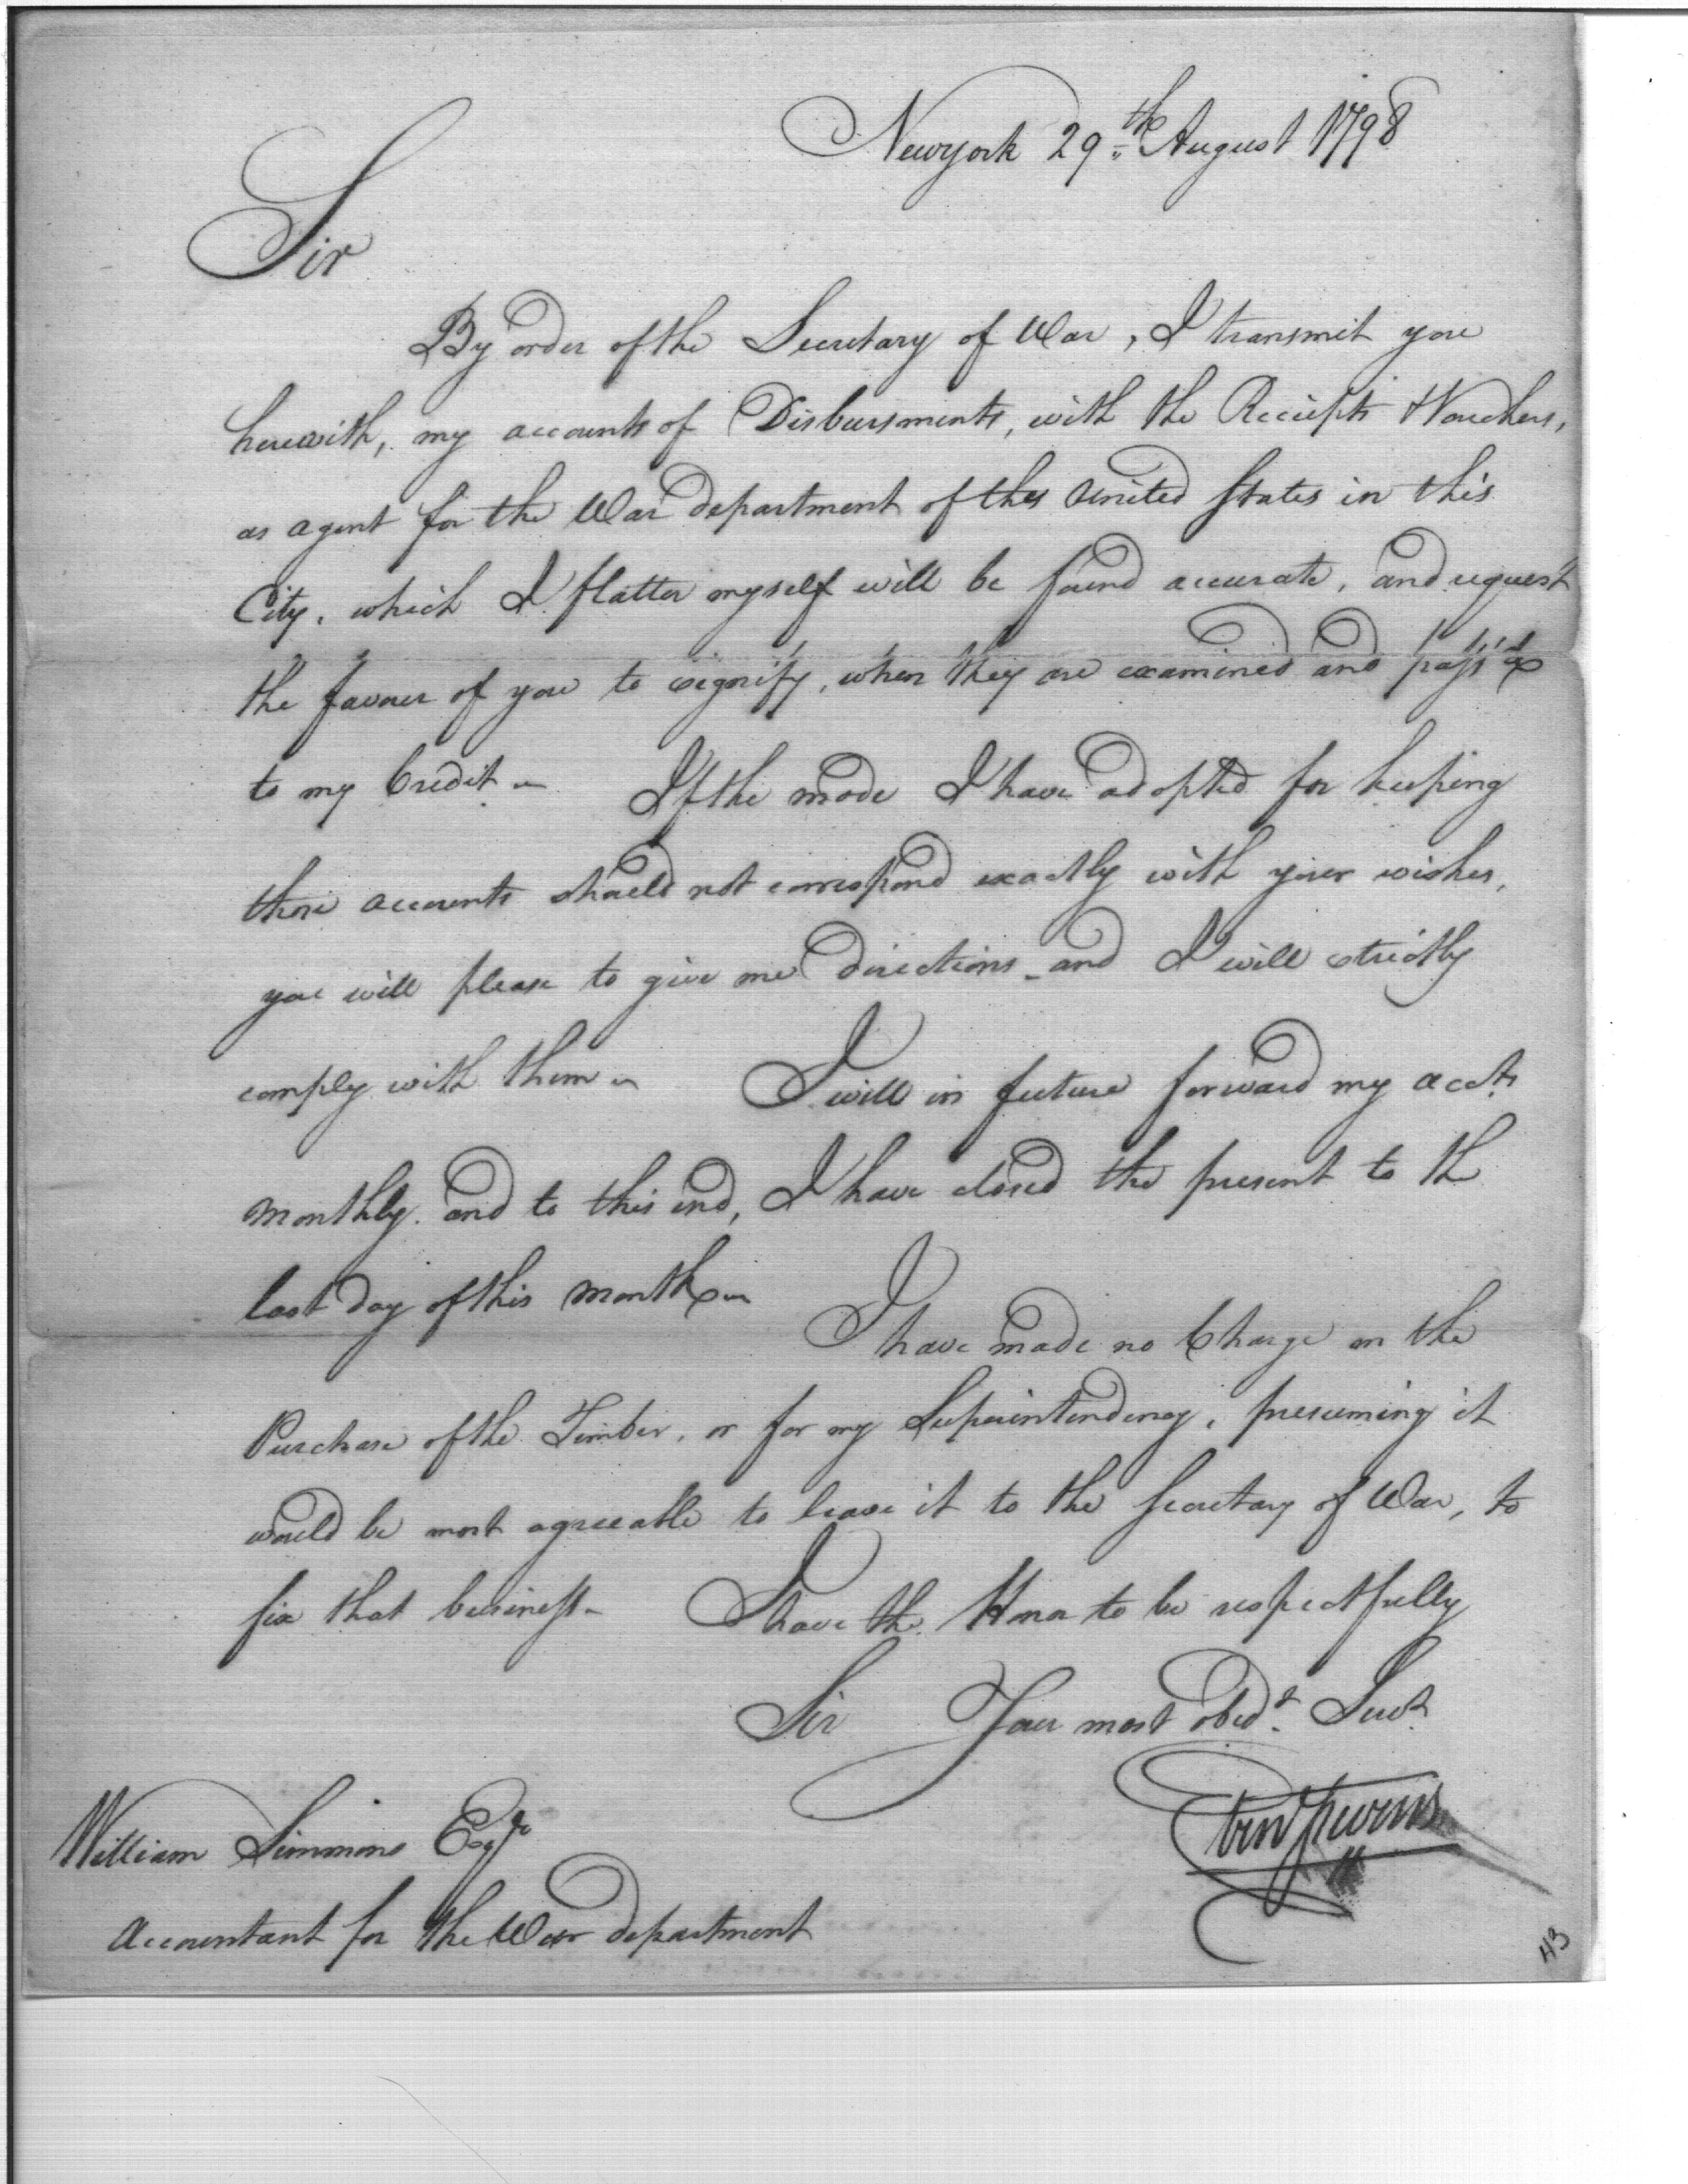 Newyork 29th August 1798
Sir
By order of the Secretary of War, I transmit you
herewith, my accounts of Disbursments, with the Reciepts & Vouchers,
as agent for the War department of the United States in this
City, which I flatter myself will be found accurate, and request
the favour of you to signify, when they are examined and pass'd
to my Credit - If the mode I have adopted for keeping
those accounts should not correspond exactly with your wishes,
you will please to give me directions - and I will strictly
comply with them - I will in future forward my accts
monthly. and to this end, I have closed the present to th
last day of this month -
I have made no Charge on the
Purchase of the Timber, or for my Superintendency, presuming it
would be most agreeable to leave it to the Secretary of War, to
fix that business - I have the Honor to be respectfully
Sir Your most obedt. Servt.
Eben Stevens
William Simmons Esqr
Accountant for the War department
43